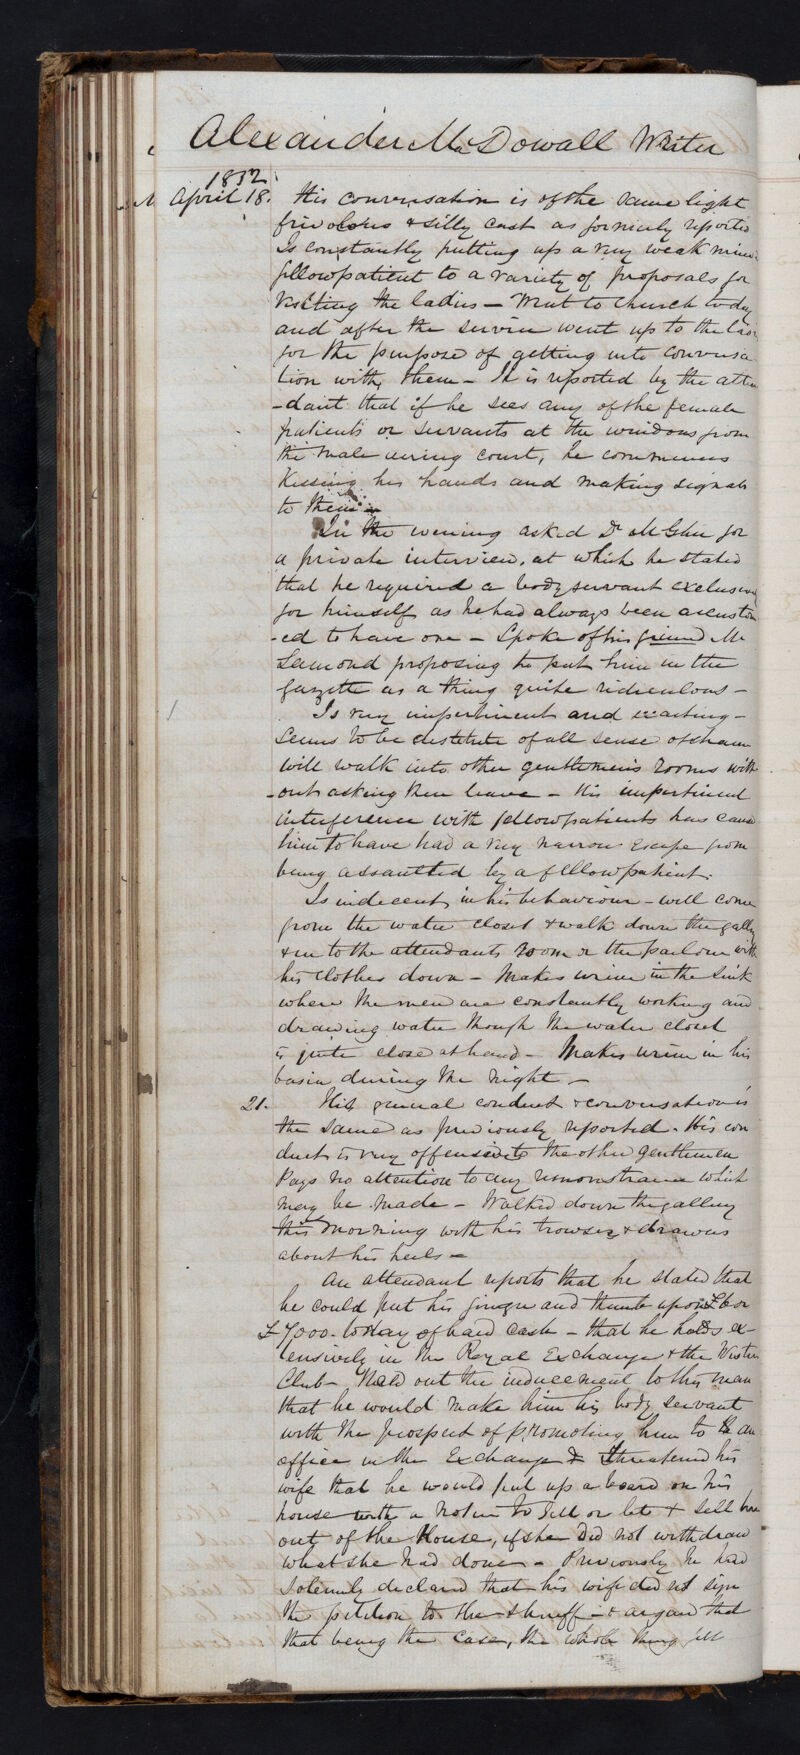 Alexander McDowall Writer
1832.
April 18. His conversation is of the same light
frivolous & silly cast as formerly reported
Is constantly putting up a very weak mind
fellowpatient to a variety of proposals for
visiting the ladies – Went to church today
and after the service went up to the
for the purpose of getting into conversa
tion with them – It is reported by the atten
-dant that if he sees any of the female
patients or servants at the windows from
the male airing court, he commences
Kissing his hands and making signals
to them –
In the evening asked Dr McGhie for
a private interview, at which he stated
that he required a body servant exclusively
for himself as he had always been accustom
-ed to have one – Spoke of his friend Mr
Lamond proposing to put him in the
gazette as a thing quite ridiculous –
Is very impertinent and exacting –
seems to be destitute of all sense of shame
will walk into other gentlemen's rooms with
-out asking their leave – His impertinent
interference with fellowpatients has caused
him to have had a very narrow escape from
being assaulted by a fellowpatient.
Is indecent in his behaviour – will come
from the water closet & walk down the gallery
& in to the attendants room or the parlour with
his clothes down – Makes urine in the sink
where the men are constantly working and
drawing water though the water closet
is quite close at hand – Makes urine in his
basin during the night –
21. His general conduct & conversation is
the same as previously reported. His con
duct is very offensive to the other gentlemen
Pays no attention to any remonstrance which
may be made – Walked down the gallery
this morning with his trowsers & drawers
about his heels –
An attendant reports that he stated that
he could put his finger and thumb upon £6 or
£7000. today of hard cash – that he holds ex-
tensively in the Royal Exchange & the Western
Club – Held out the inducement to this man
that he would make him his body servant
with the prospect of promoting him to an
office in the Exchange & threatened his
wife that he would put up a board on his
house with a notice to sell or let & sell her
out of the House, if she did not withdraw
what she had done – Previously he had
solemnly declared that his wife did not sign
the petition to the sheriff – & argued that
that being the case, the whole thing fell